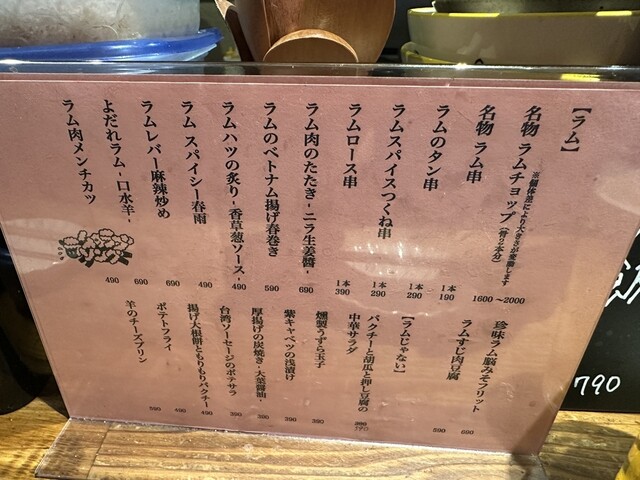 【ラム】
名物 ラムチョップ(骨2本分)
※個体差により大きさが変動します
1600〜2000
名物 ラム串
1本 190
ラムのタン串
1本 290
ラムスパイスつくね串
1本 290
ラムロース串
1本 390
ラム肉のたたき-ニラ生姜醬-
690
ラムのベトナム揚げ春巻き
590
ラムハツの炙り-香草葱ソース-
490
ラム スパイシー春雨
490
ラムレバー麻辣炒め
690
よだれラム-口水羊-
690
ラム肉メンチカツ
490
珍味ラム脳みそフリット
690
ラムすじ肉豆腐
590
【ラムじゃない】
パクチーと胡瓜と押し豆腐の
中華サラダ
390
燻製うずら玉子
390
紫キャベツの浅漬け
390
厚揚げの炭焼き-大葉醤油-
390
台湾ソーセージのポテサラ
390
揚げ大根餅ともりもりパクチー
490
ポテトフライ
490
羊のチーズプリン
590
790